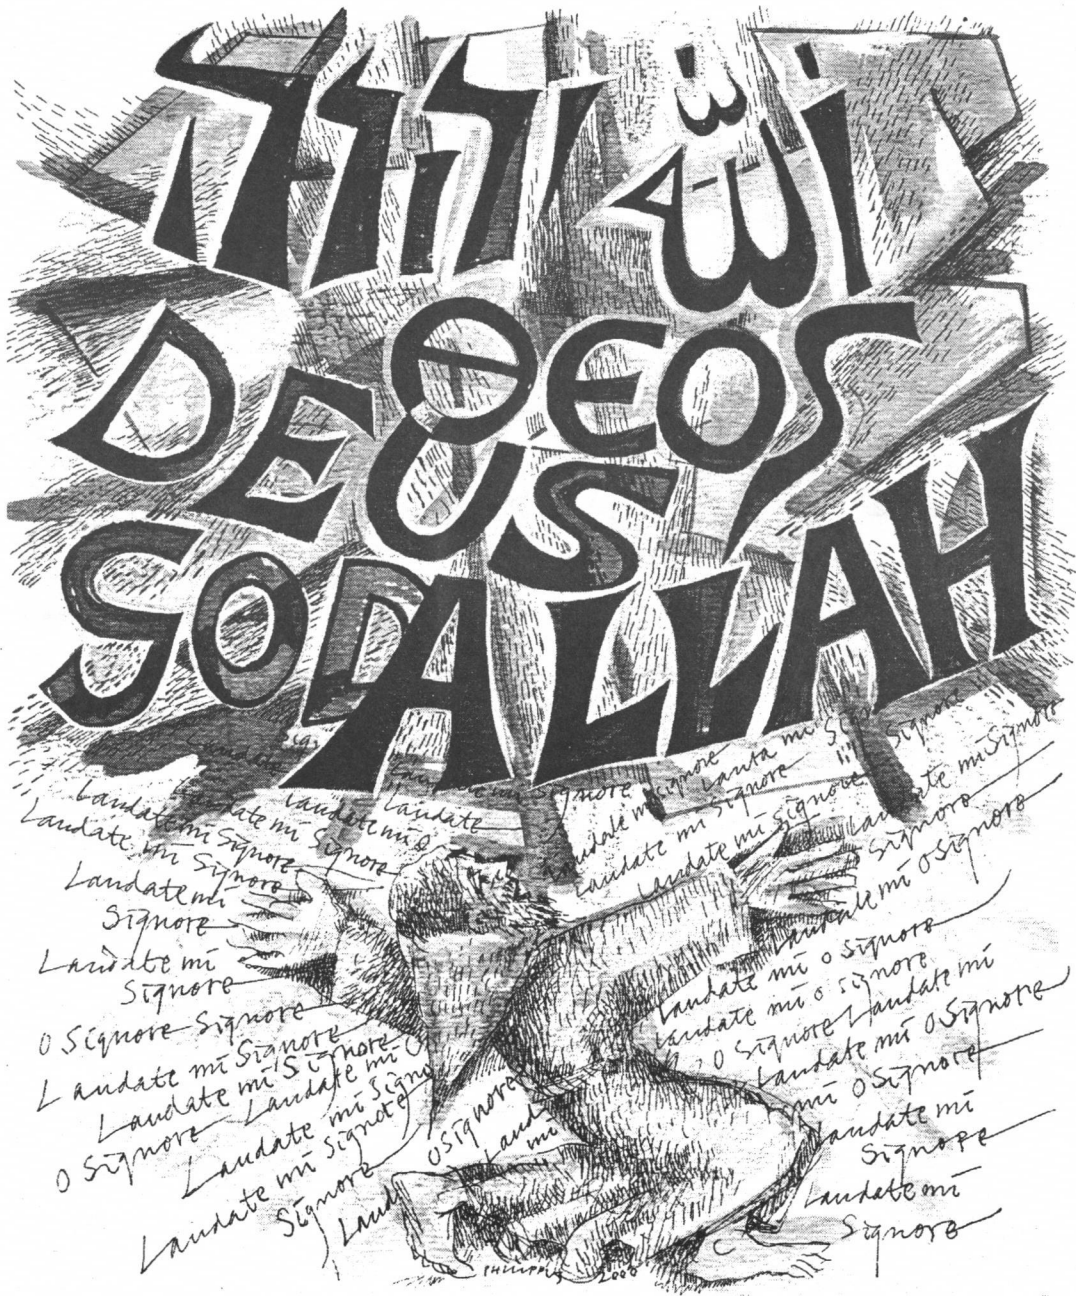 יהוה الله
ΘEOS
DEUS
GOD ALLAH
Laudate mi Signore
Laudate mi Signore
Laudate mi
Signore
Laudate mi
Signore
O Signore Signore
Laudate mi Signore
Laudate mi Signore
O Signore Laudate mi O
Laudate mi Signo
Laudate mi Signore
Signore
Laud
O Signore
Laud
mi
Laudate mi Signore
Laudate mi Signore
Laudate mi Signore
Laudate mi Signore
Signore
Laudate mi O Signore
Laudate mi O Signore
Laudate mi O Signore
O Signore Laudate mi
Laudate mi O Signore
mi O Signore
Laudate mi
Signore
Laudate mi
Signore
2000